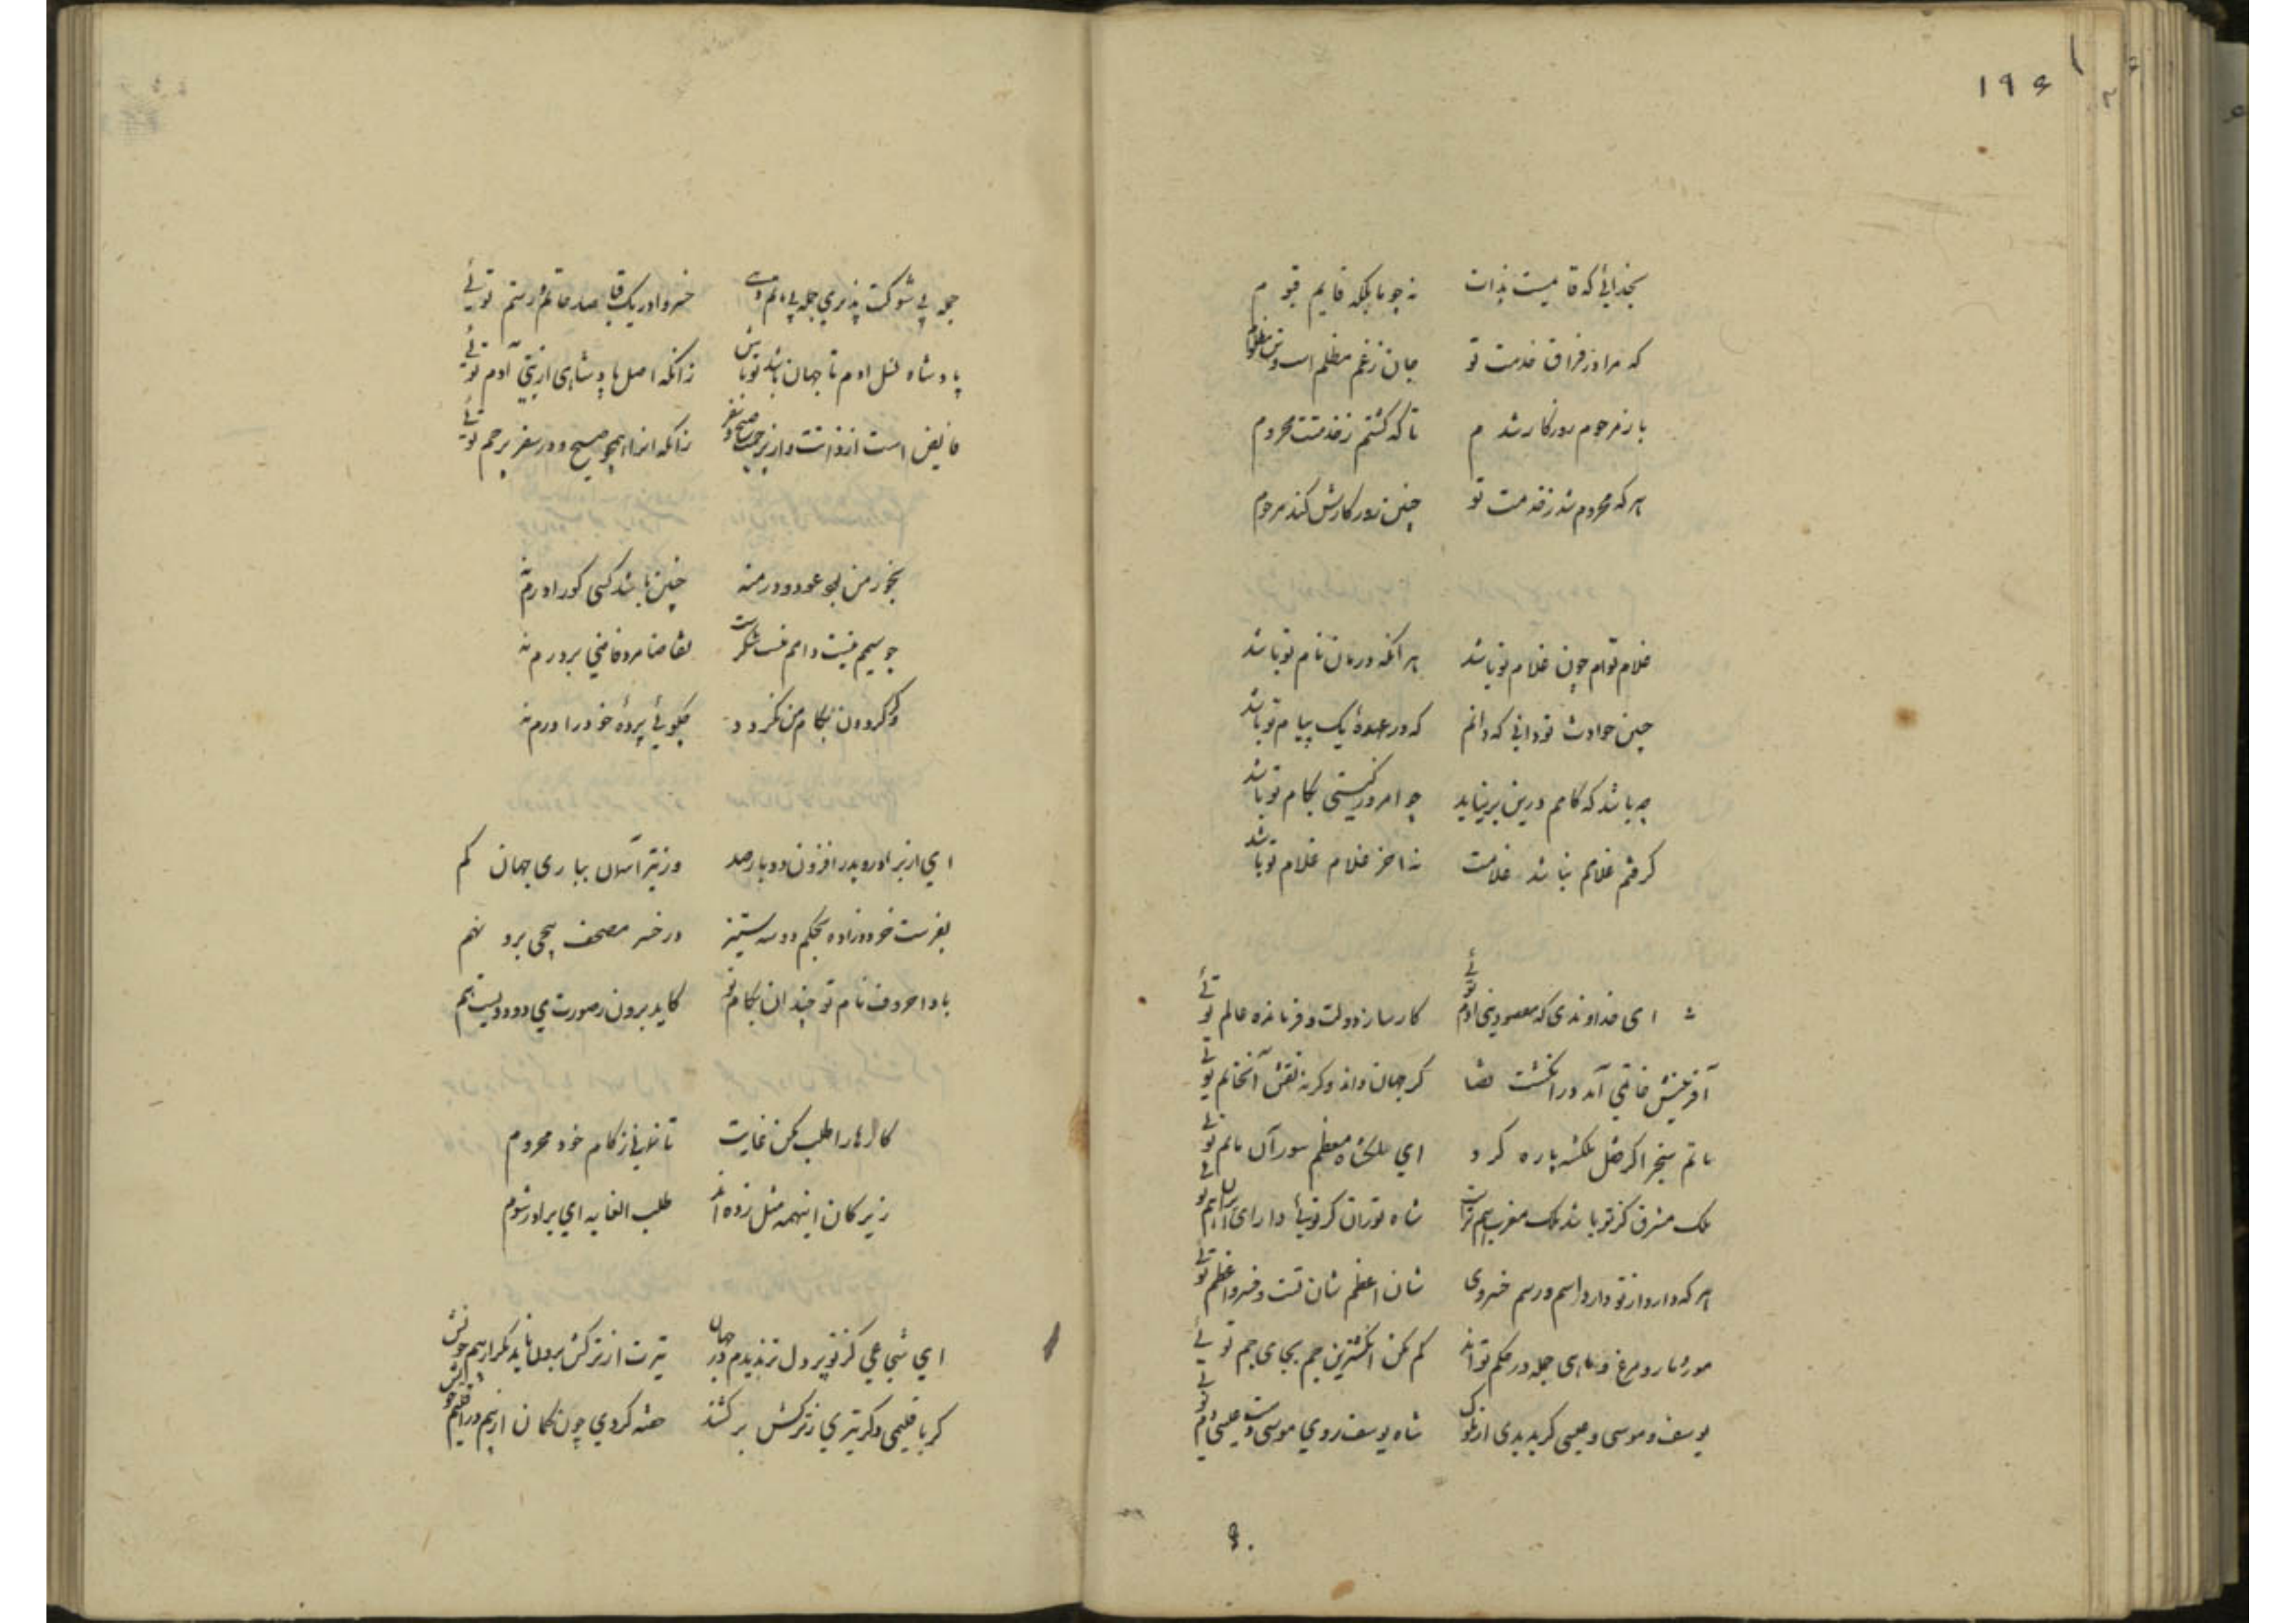 ۱۹۶
بخدائی که قایمست بذات نه چو ما بلکه قایم قیوم
که مرا در فراق خدمت تو جان ز غم مظلم است و تن مظلوم
باز مرحوم روزکار شدم تا که کشتم ز خدمتت محروم
هر که محروم شد ز خدمت تو چنین روزکارش کند مرحوم
غلام توام چون غلام تو باشد هر آنکه در مان نام تو باشد
چنین حوادث تو دانی که دانم که در عهدهٔ یک پیام تو باشد
چه باشد که کامم درین بر نیاید چو امروز کیستی بکام تو باشد
کرفتم غلام نباشد غلامت نه آخر غلام غلام تو باشد
ای خداوندی که مقصود بنی آدم توئی کارساز دولت و فرمانده عالم توئی
آفرینش خاتمی آمد در انکشت قضا کر جهان داند وکرنه نقش آن خاتم توئی
ماتم سنجر اکر قتل ملکشه پاره کرد ای ملکشاه معظم سور آن ماتم توئی
ملک مشرق کر تو باشد ملک مغرب هم تراست شاه توران کر توئی دارای ایران هم توئی
هر که دارد از تو دارد اسم و رسم خسروی شان اعظم شان تست و خسرو اعظم توئی
مور و مار و مرغ و ماهی جمله در حکم تواند کم مکن انکشترین جم بجای جم توئی
یوسف و موسی و عیسی کر بدیدی از ملوک شاه یوسف روی موسی دست عیسی دم توئی
۹۰
جمله بی شوکت پذیری جمله بی خسروا در یک قبا صد حاتم و رستم توئی
پادشاه نسل آدم تا جهان باشد تو باش زانکه اصل پادشاهی از بنی آدم توئی
فایض است از در سفر بر حم توئی
بخور من بجو عود و درمنه چنین باشد کسی کو را درم نه
چو سیمم نیست دایم تقاضا مرد قاضی بر درم نه
وکر کردون بکام من نکردد بکوئی پردهٔ خود را درم نه
ای از برادر و پدر افزون دوبار صد وز تیر آسمان بباری جهان کم
بفرست خردزاده بحکم دو سه ستیز در خسر مصحف یحیی برد نهم
بادا حروف نام تو چندان بکام تو کاید برون ز صورت سی و دو و دویست هم
کارها را طلب مکن غایت تا نمانی ز کام خود محروم
زیرکان اینهمه مثل زده‌اند طلب الغایه ای برادر شوم
ای شجاعی کز تو پر دل تر ندیدم در جهان تیرت از ترکش برون
کر با قلیمی دکر تیری ز ترکش برکشند خسته کردی چون کمان